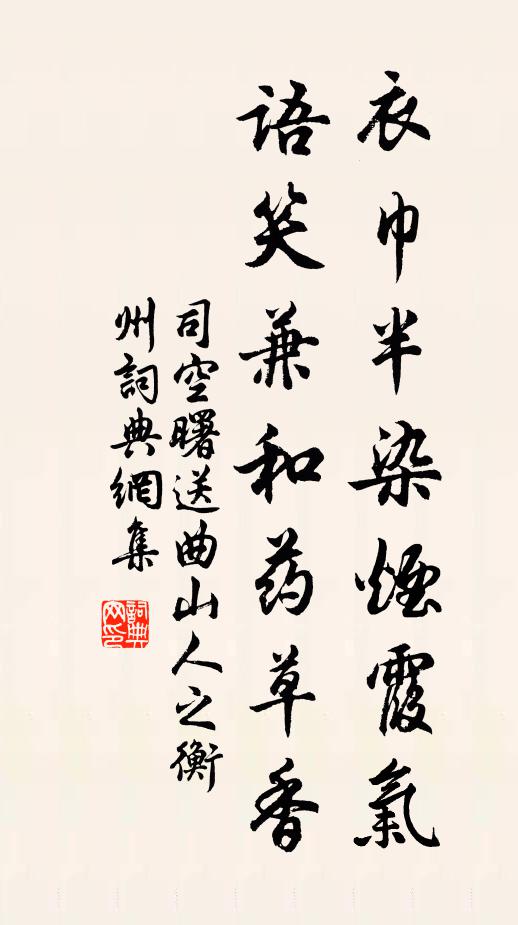 衣巾半染煙霞氣
語笑兼和药草香
司空曙送曲山人之衡
州詞典網集
詞典
网印